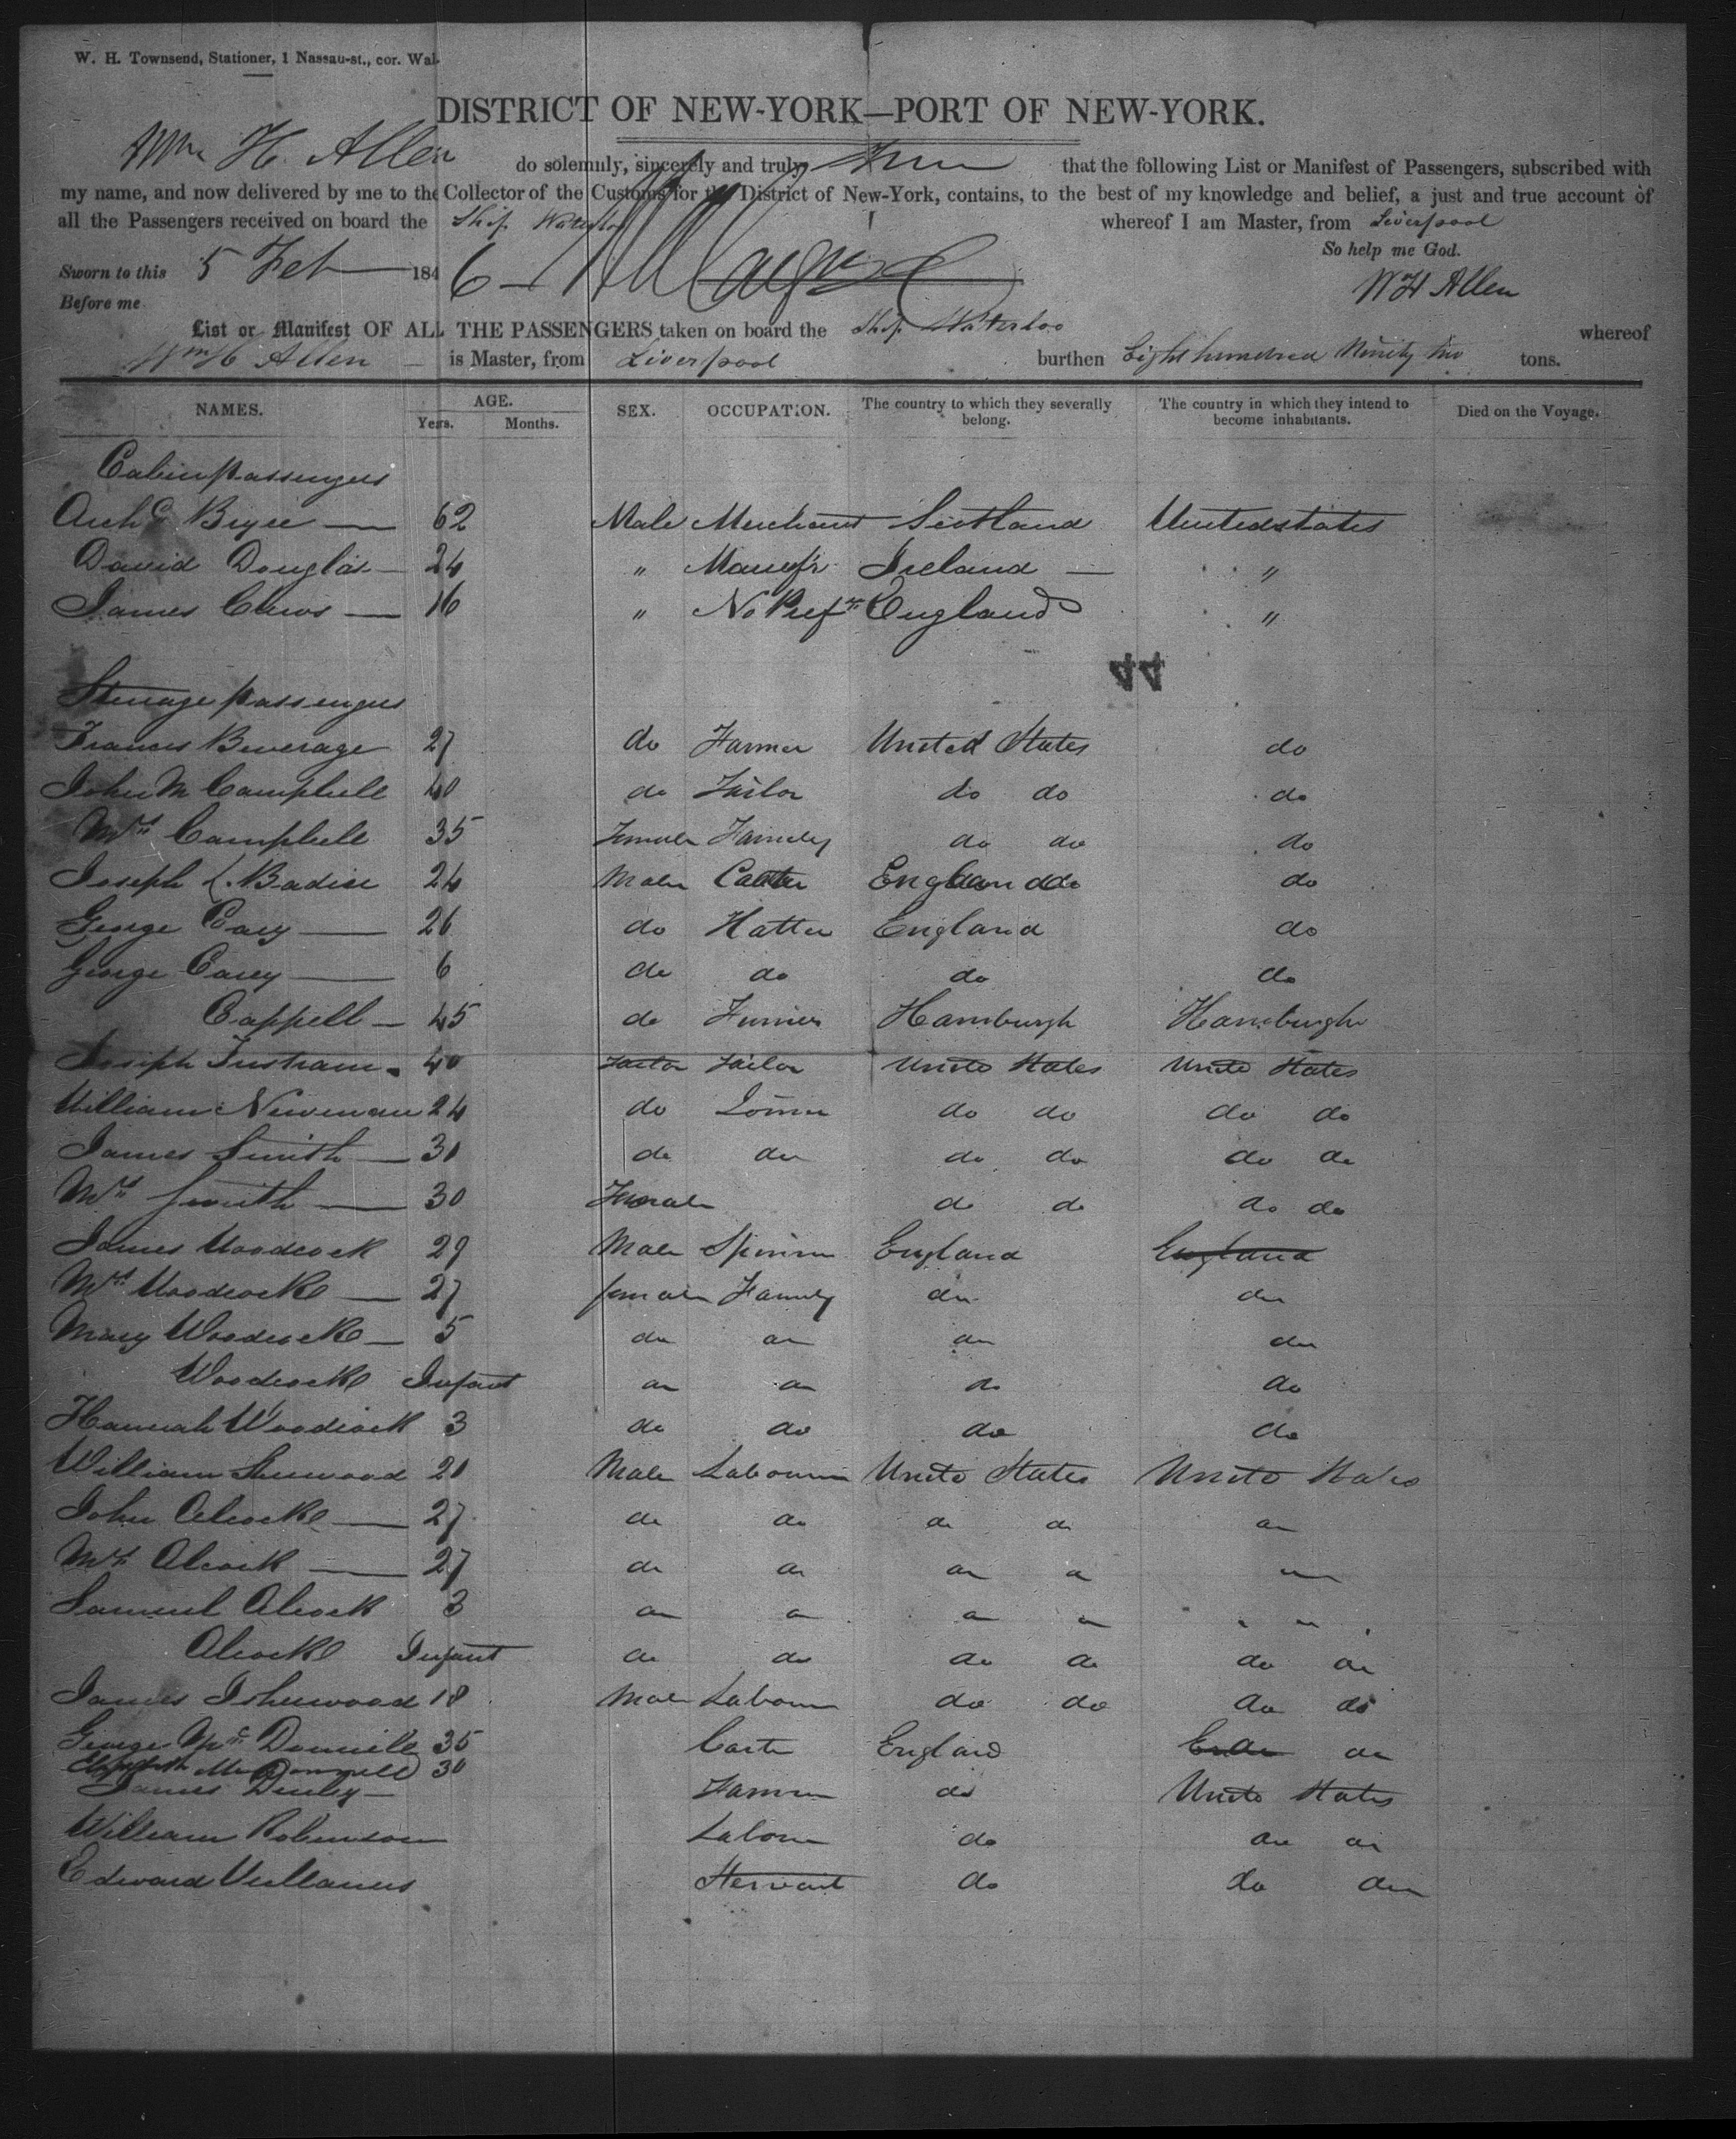 W. H. Townsend, Stationer, 1 Nassau-st., cor. Wal
DISTRICT OF NEW-YORK—PORT OF NEW-YORK.
Wm H. Allen do solemnly, sincerely and truly that the following List or Manifest of Passengers, subscribed with
my name, and now delivered by me to the Collector of the Customs for the District of New-York, contains, to the best of my knowledge and belief, a just and true account of
all the Passengers received on board the Ship Waterloo whereof I am Master, from Liverpool
So help me God.
Sworn to this 5 Feb 1846
W H Allen
Before me
List or Manifest OF ALL THE PASSENGERS taken on board the Ship Waterloo whereof
Wm H Allen is Master, from Liverpool burthen Eight hundred Ninety two tons.
NAMES. AGE. Years. Months. SEX. OCCUPATION. The country to which they severally belong. The country in which they intend to become inhabitants. Died on the Voyage.
Cabin passengers
Archd Bryce 62 Male Merchant Scotland United states
David Douglas 24 " Manufr Ireland "
James Clews 16 " No England "
44
Steerage passengers
Frances Beverage 27 do Farmer United States do
John M Campbell 40 do Tailor do do do
Mrs Campbell 35 Female Family do do do
Joseph 24 Male England do
George Cary 26 do Hatter England do
George Carey 6 do do do do
Cappell 45 do Furrier Hamburgh Hamburgh
Joseph Tustram 40 Tailor Tailor Unitd States Unitd States
William Newman 24 do do do do do
James Smith 30 do do do do do do
Mrs Smith 30 Female do do do do
James Woodcock 29 Male Spinner England England
Mrs Woodcock 27 female Family do do
Mary Woodcock 5 do do do do
Woodcock Infant do do do do
Hannah Woodcock 3 do do do do
William Sherwood 20 Male Labourer Unitd States Unitd States
John Alcock 27 do do do do do
Mrs Alcock 27 do do do do do
Samuel Alcock 3 do do do do do
Alcock Infant do do do do do do
James Isherwood 18 Male Labourer do do do do
George Mc Donnell 35 Carter England do
Elizabeth McDonnell 30
James Denley Farmer do Unitd States
William Robinson Labourer do do do
Edward Servant do do do